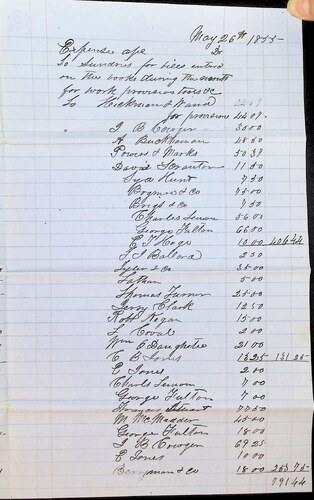 May 26th 1855
Expense a/c Dr
To Sundries for bills entered
on the books during the month
for work provisions tools &c
To Hickman & Ward
for provision 44.08
I B Cowgen 30.00
A Buchhanan 48.50
Powers & Marks 50.38
David Scranton 11.50
Syd Hunt 7.50
Boyman & Co 75.00
Brigs & Co 7.50
Charles Lemon 56.00
George Fulton 66.00
E T Hoge 10.00 406.46
J I Ballard 2.50
Syler & Co 35.00
Lathan 5.00
Thomas Turner 25.00
Jerry Clark 12.50
Robt Kogan 15.00
L Coval 2.00
Wm P Daughetee 21.00
C B Jones 13.25 131.25
E Jones 2.00
Charls Lemon 7.00
George Fulton 7.00
Stewart 77.50
M McMadder 45.00
George Fulton 18.00
I B Cowgen 69.25
E Jones 10.00
Berryman & Co 18.00 253.75
791.44